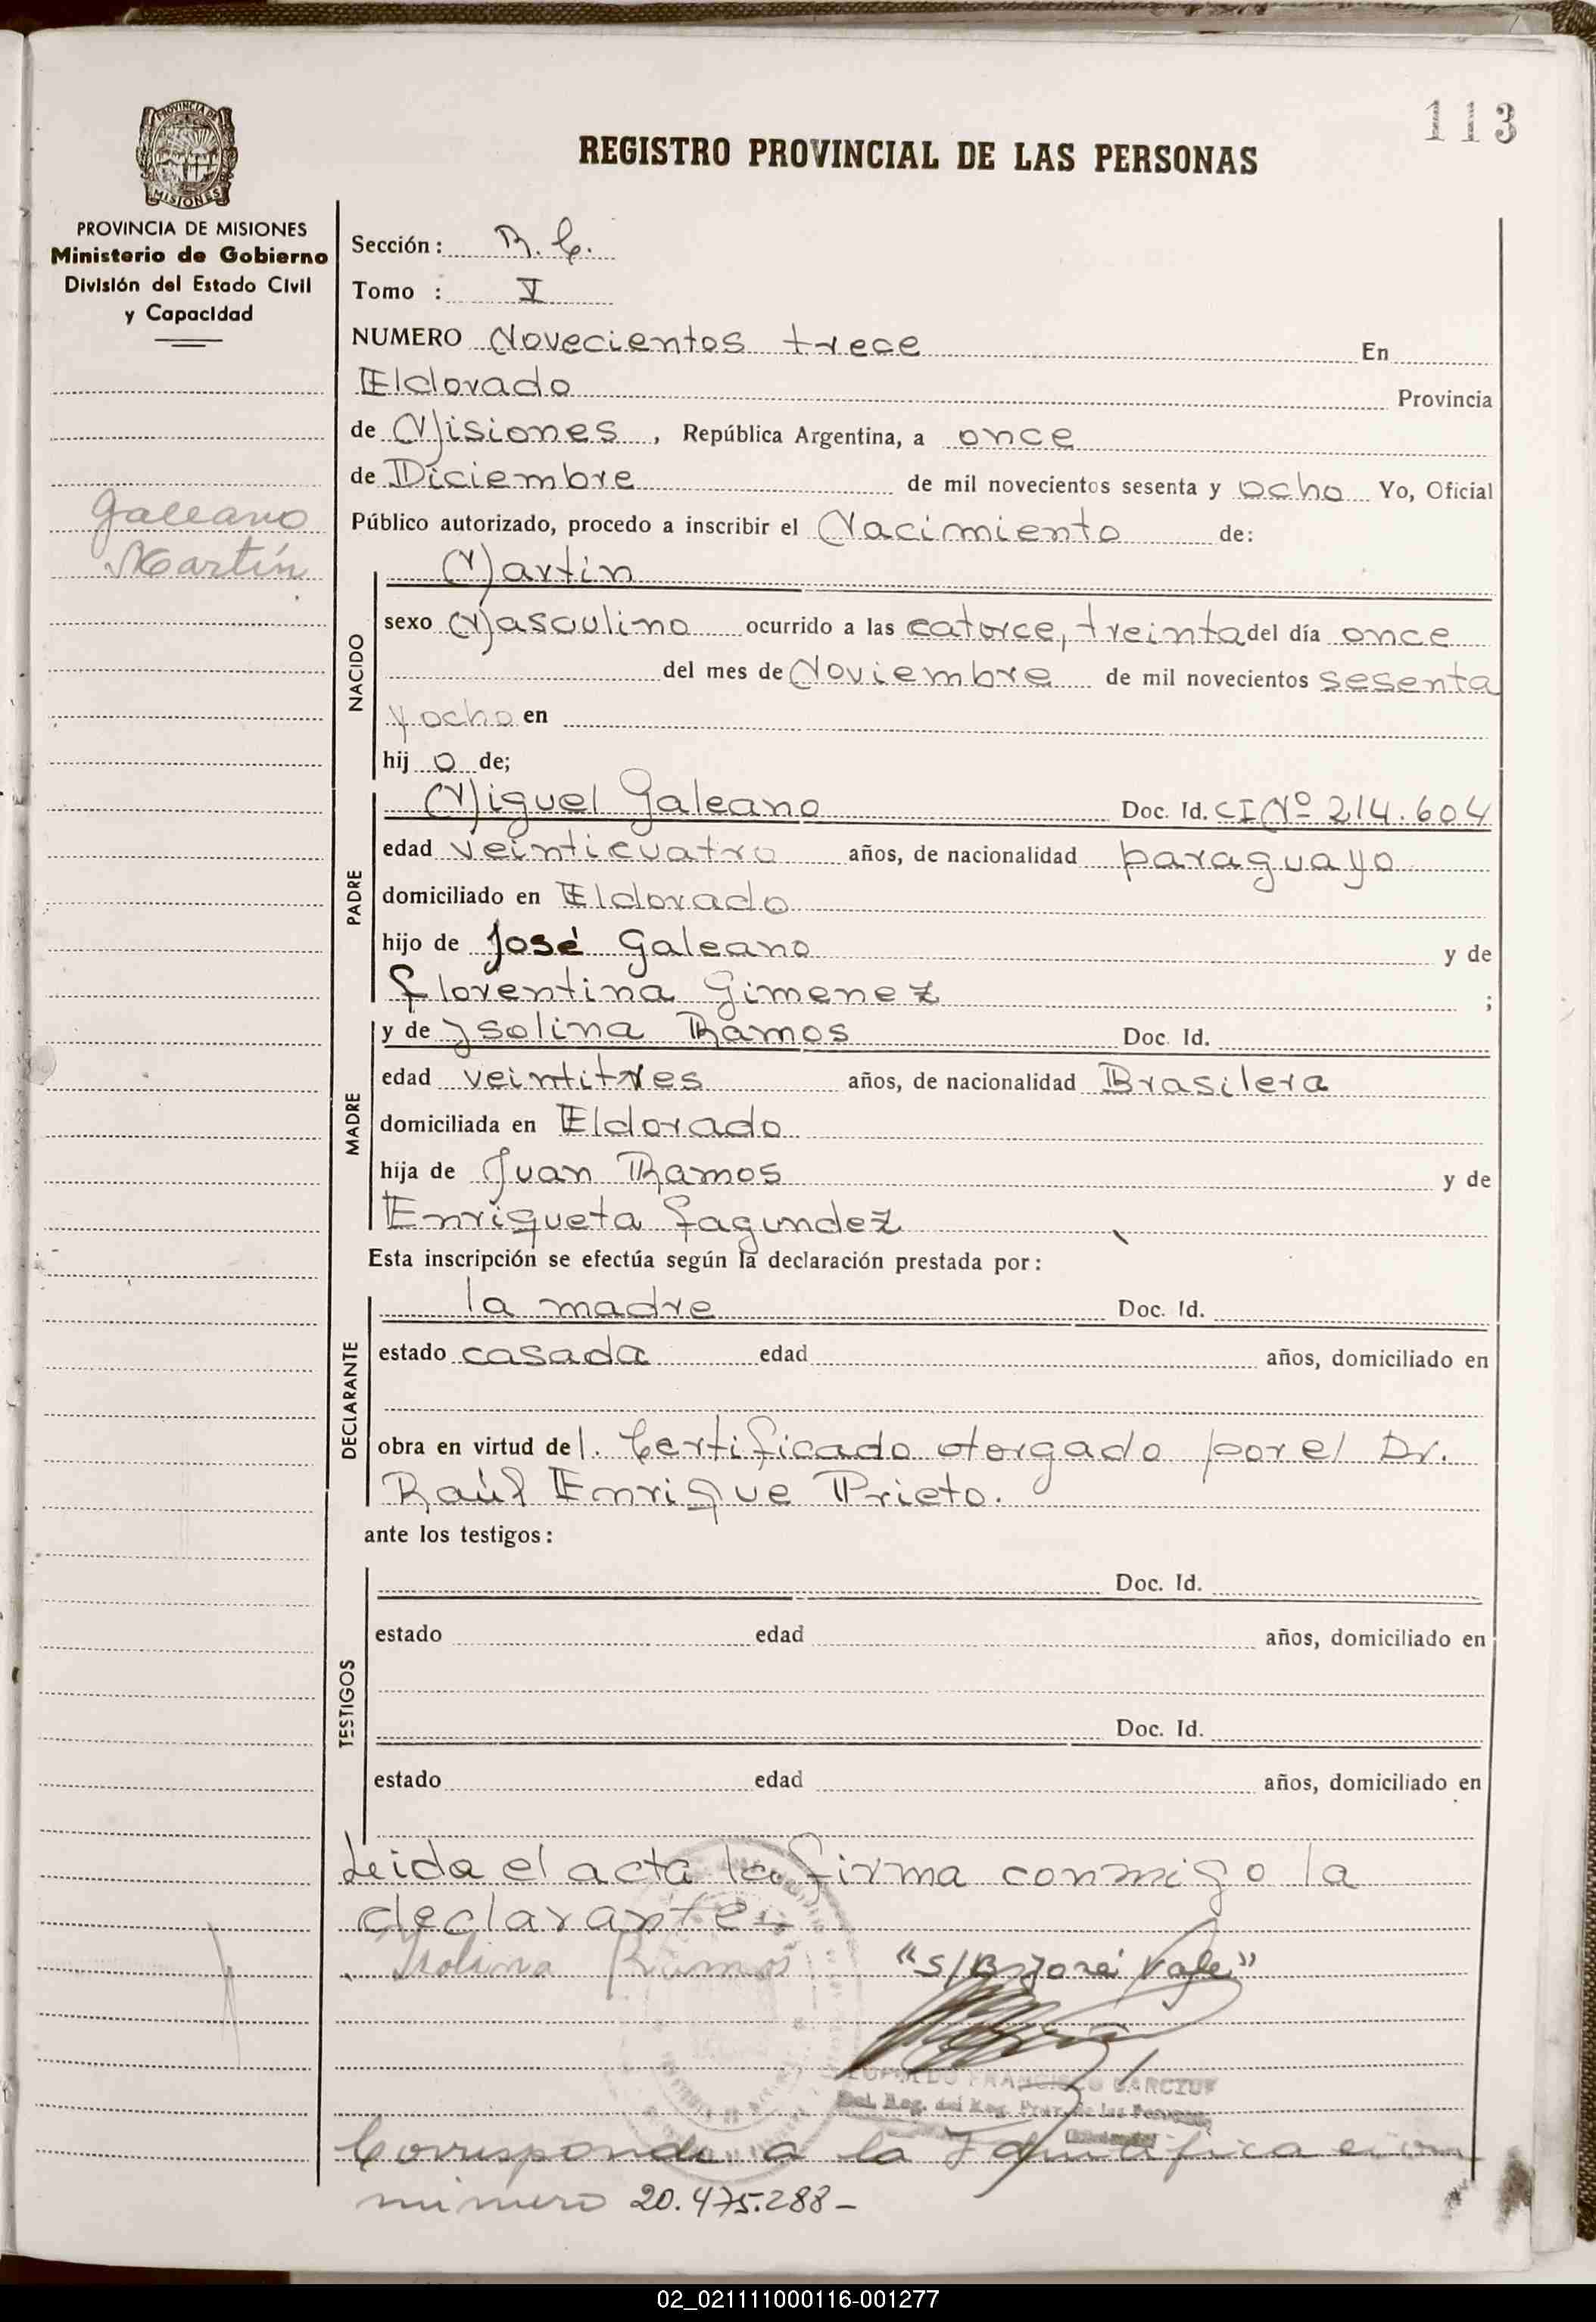 113
PROVINCIA DE MISIONES
REGISTRO PROVINCIAL DE LAS PERSONAS
PROVINCIA DE MISIONES
Ministerio de Gobierno
División del Estado Civil
y Capacidad
Galeano
Martín
Sección: R. C.
Tomo : V
NUMERO Novecientos trece En
Eldorado Provincia
de Misiones, República Argentina, a once
de Diciembre de mil novecientos sesenta y ocho Yo, Oficial
Público autorizado, procedo a inscribir el Nacimiento de:
NACIDO
Martín
sexo Masculino ocurrido a las catorce, treinta del día once
del mes de Noviembre de mil novecientos sesenta
y ocho en
hijo de;
PADRE
Miguel Galeano Doc. Id. CI Nº 214.604
edad veinticuatro años, de nacionalidad paraguayo
domiciliado en Eldorado
hijo de José Galeano y de
Florentina Gimenez ;
MADRE
y de Isolina Ramos Doc. Id.
edad veintitres años, de nacionalidad Brasilera
domiciliada en Eldorado
hija de Juan Ramos y de
Enriqueta Fagundez
Esta inscripción se efectúa según la declaración prestada por:
DECLARANTE
la madre Doc. Id.
estado casada edad años, domiciliado en
obra en virtud del. Certificado otorgado por el Dr.
Raúl Enrique Prieto.
ante los testigos:
TESTIGOS
Doc. Id.
estado edad años, domiciliado en
Doc. Id.
estado edad años, domiciliado en
Leida el acta la firma conmigo la
declarante.
Isolina Ramos "S/B José Vale"
FRANCISCO
Corresponde a la Identificacion
numero 20.475.288-
02_021111000116-001277